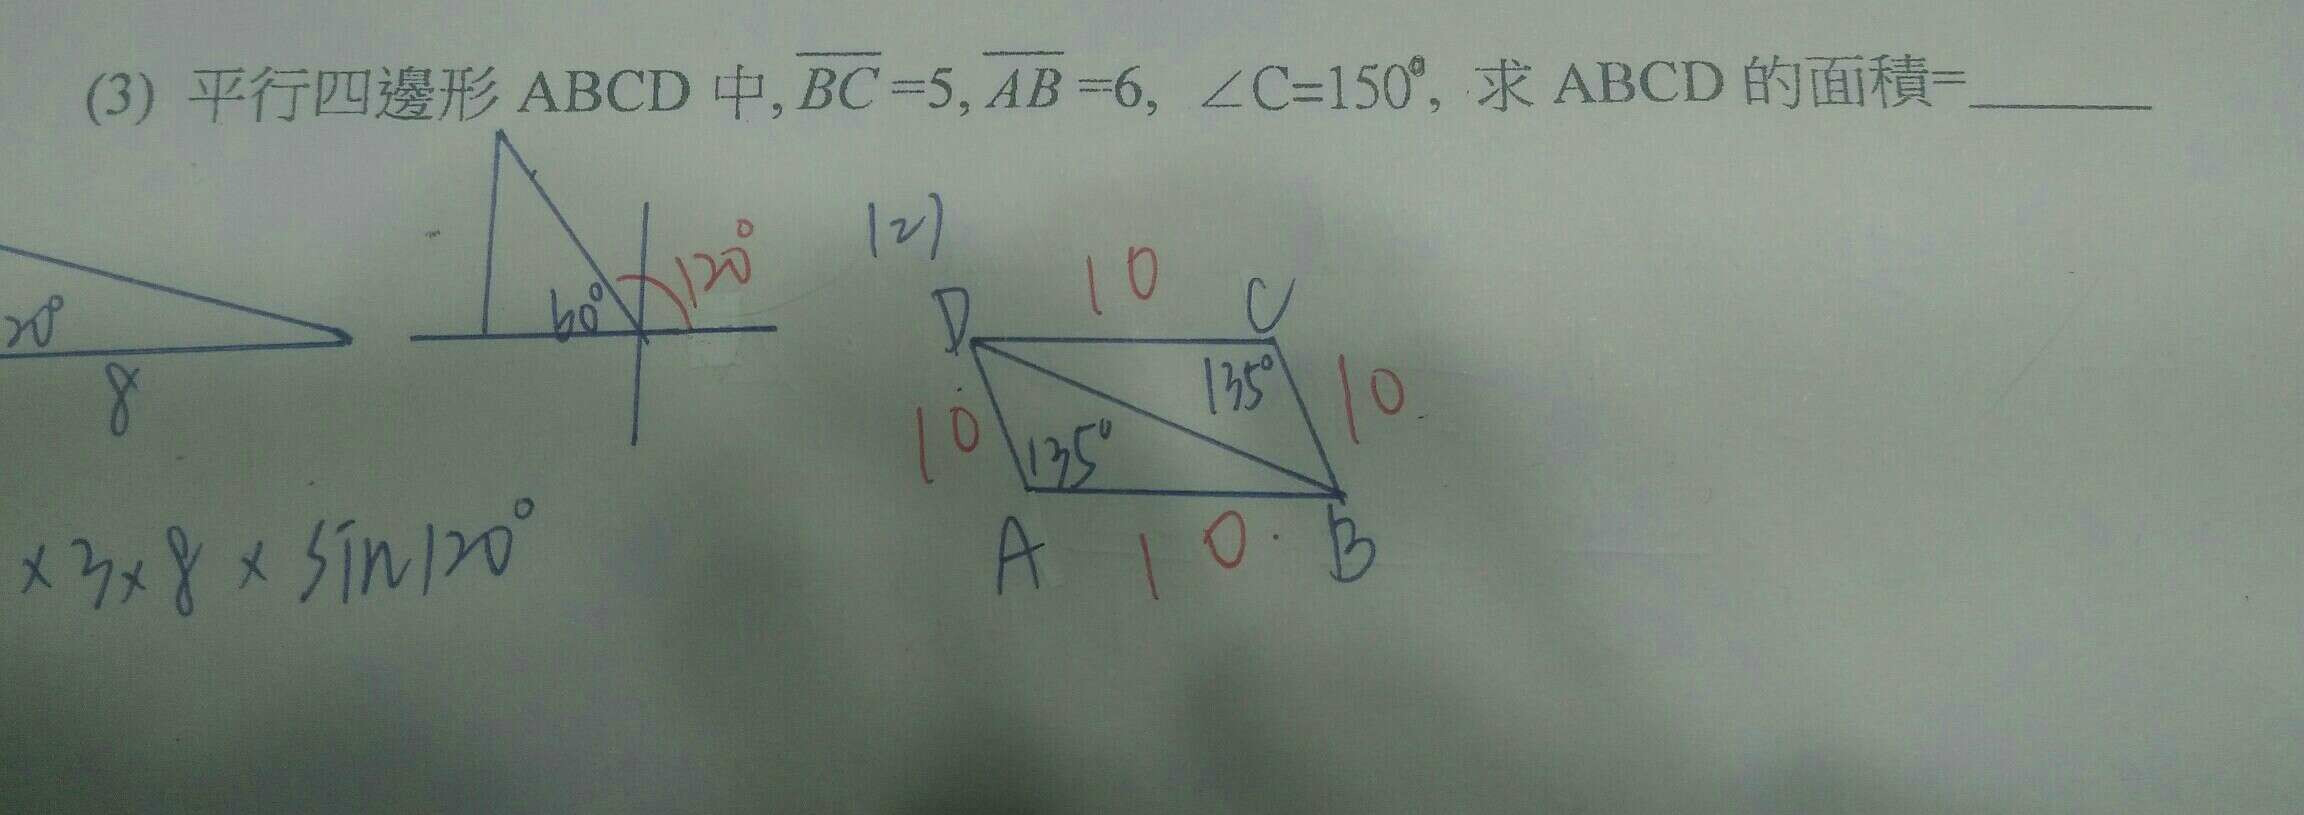 (3) 平行四邊形 ABCD 中, BC =5, AB =6, ∠C=150°, 求 ABCD 的面積=______
120°
(2)
10
D
C
60°
20°
135°
10
8
10
135°
A
10
B
×3×8×sin120°